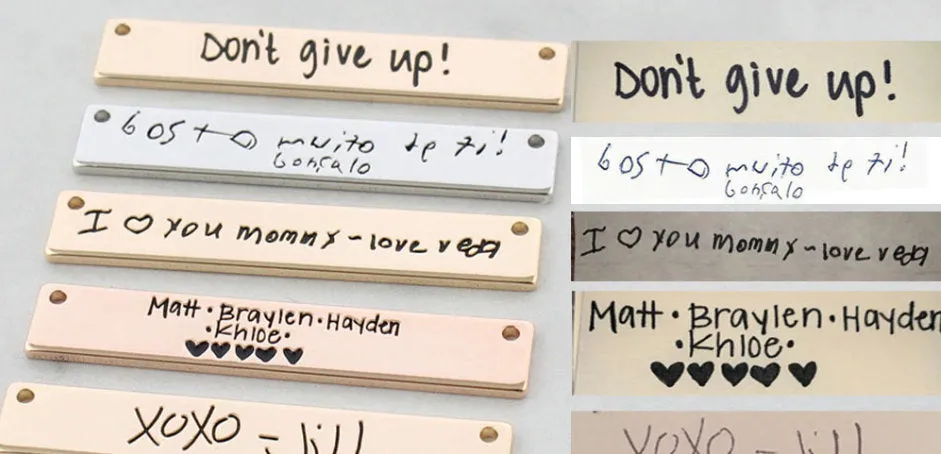 Don't give up!
Don't give up!
Gosto muito de ti!
Gonçalo
Gosto muito de ti!
Gonçalo
I ♡ you mommy ~ love veda
I ♡ you mommy ~ love veda
Matt · Braylen · Hayden
· Khloe ·
♥♥♥♥♥
Matt · Braylen · Hayden
· Khloe ·
♥♥♥♥♥
XOXO - Jill
XOXO - Jill